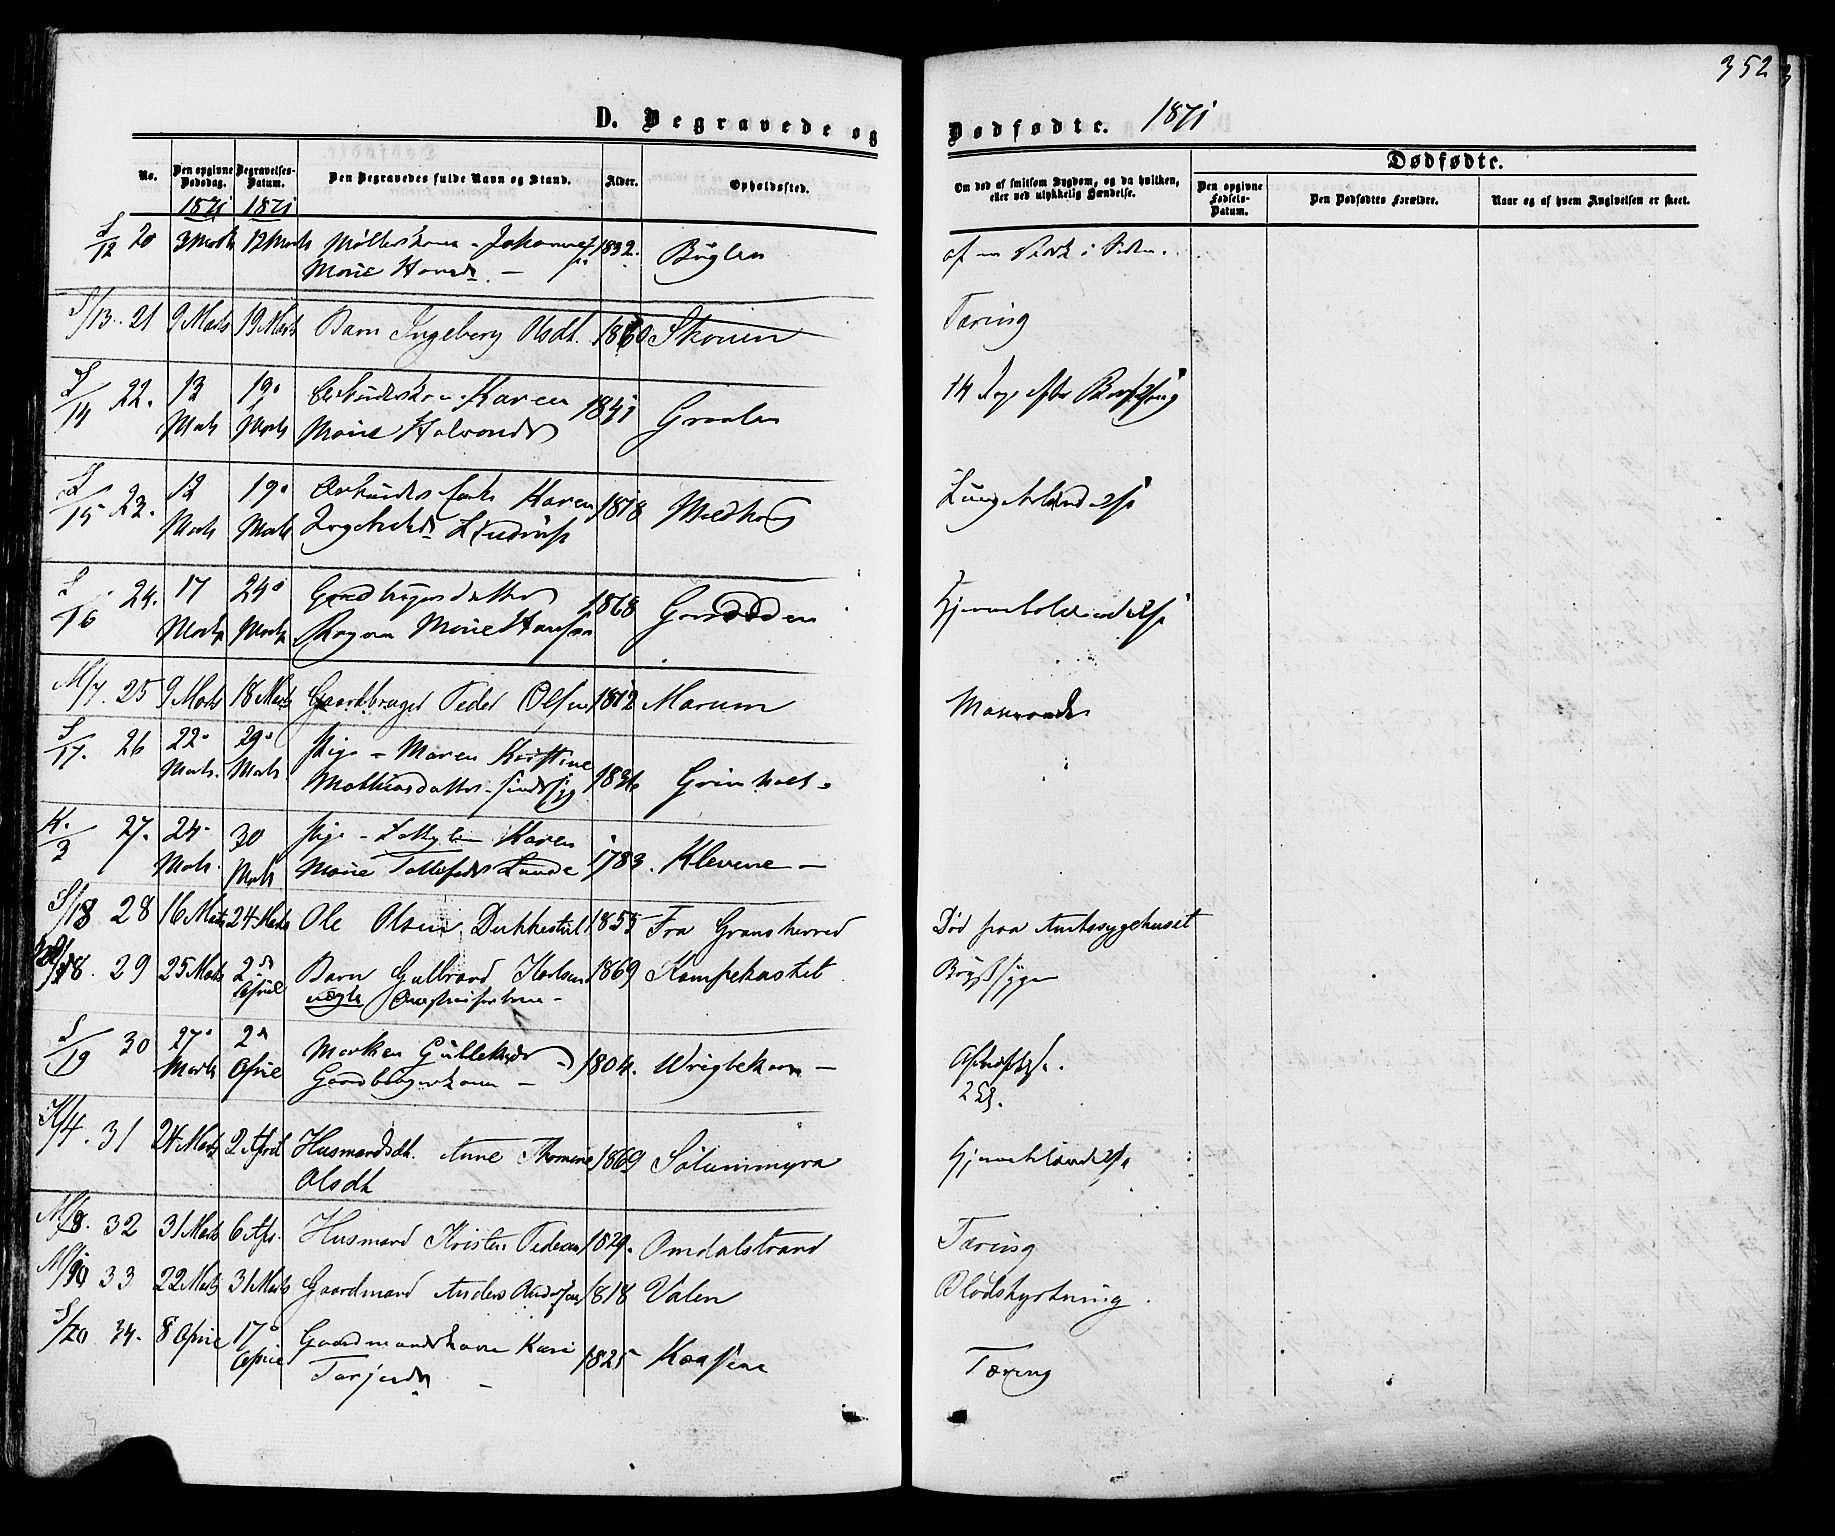 352
D. Begravede og Dødfødte. 1871
Dødfødte.
No.
Den opgivne Dødsdag.
Begravelses-Datum.
Den Begravedes fulde Navn og Stand.
Alder.
Opholdssted.
Om død af smitsom Sygdom, og da hvilken, eller ved ulykkelig Hændelse.
Den opgivne Fødsels-Datum.
Den Dødfødtes Forældre.
Naar og af hvem Angivelsen er skeet.
1871 1871
S/12 20 3 Marts 12 Marts Møllerskone - Johanne 1832. Bøglen af
Marie
S/13. 21 9 Marts 19 Marts Barn Ingeborg Olsdt. 1860 Skouen Tæring
S/14 22. 13 Marts 19 Marts Karen 1841 Graaten 14 Dage efter
Marie Halvorsdr
S/15 23. 12 Marts 19 Marts Karen 1818 Lungebetændelse
S/16 24. 17 Marts 24 Marts Gaardbrugerdatter 1868 Hjernebetændelse
Marie Hansen
M/7. 25 9 Marts 18 Marts Gaardbruger Peder Olsen 1812 Marum
S/17. 26 22 Marts. 29 Marts. Pige - Maren Kirstine 1836 Grinholt.
Mathiasdatter -
K./3 27. 24 Marts. 30 Marts Pige - Karen 1783. Klevene -
Marie Lunde
S/18 28 16 Marts 24 Marts Ole Olsen Dukkestul 1855 Fra Gransherred Død paa Amtssygehuset
18. 29 25 Marts 2 April Barn Gulbrand Karlsen 1869 Kampekastet Brystsyge
uægte
S/19 30 27 Marts 2 April 1804. -
Gaardbrugerkone -
K/4. 31 24 Marts 2 April Husmandsdt. Anne Thomine 1869 Solummyra Hjernebetændelse
Olsdt
M/8. 32 31 Marts 6 Apr. Husmand Kristen Pedersen 1829. Omdalstrand Tæring
M/9 33 22 Marts 31 Marts Gaardmand Anders Andersen 1818 Valen Blodstyrtning.
S/20 34. 8 April 17 April Gaardmandskone Kari 1825 Kaasene Tæring
Torjusdr -